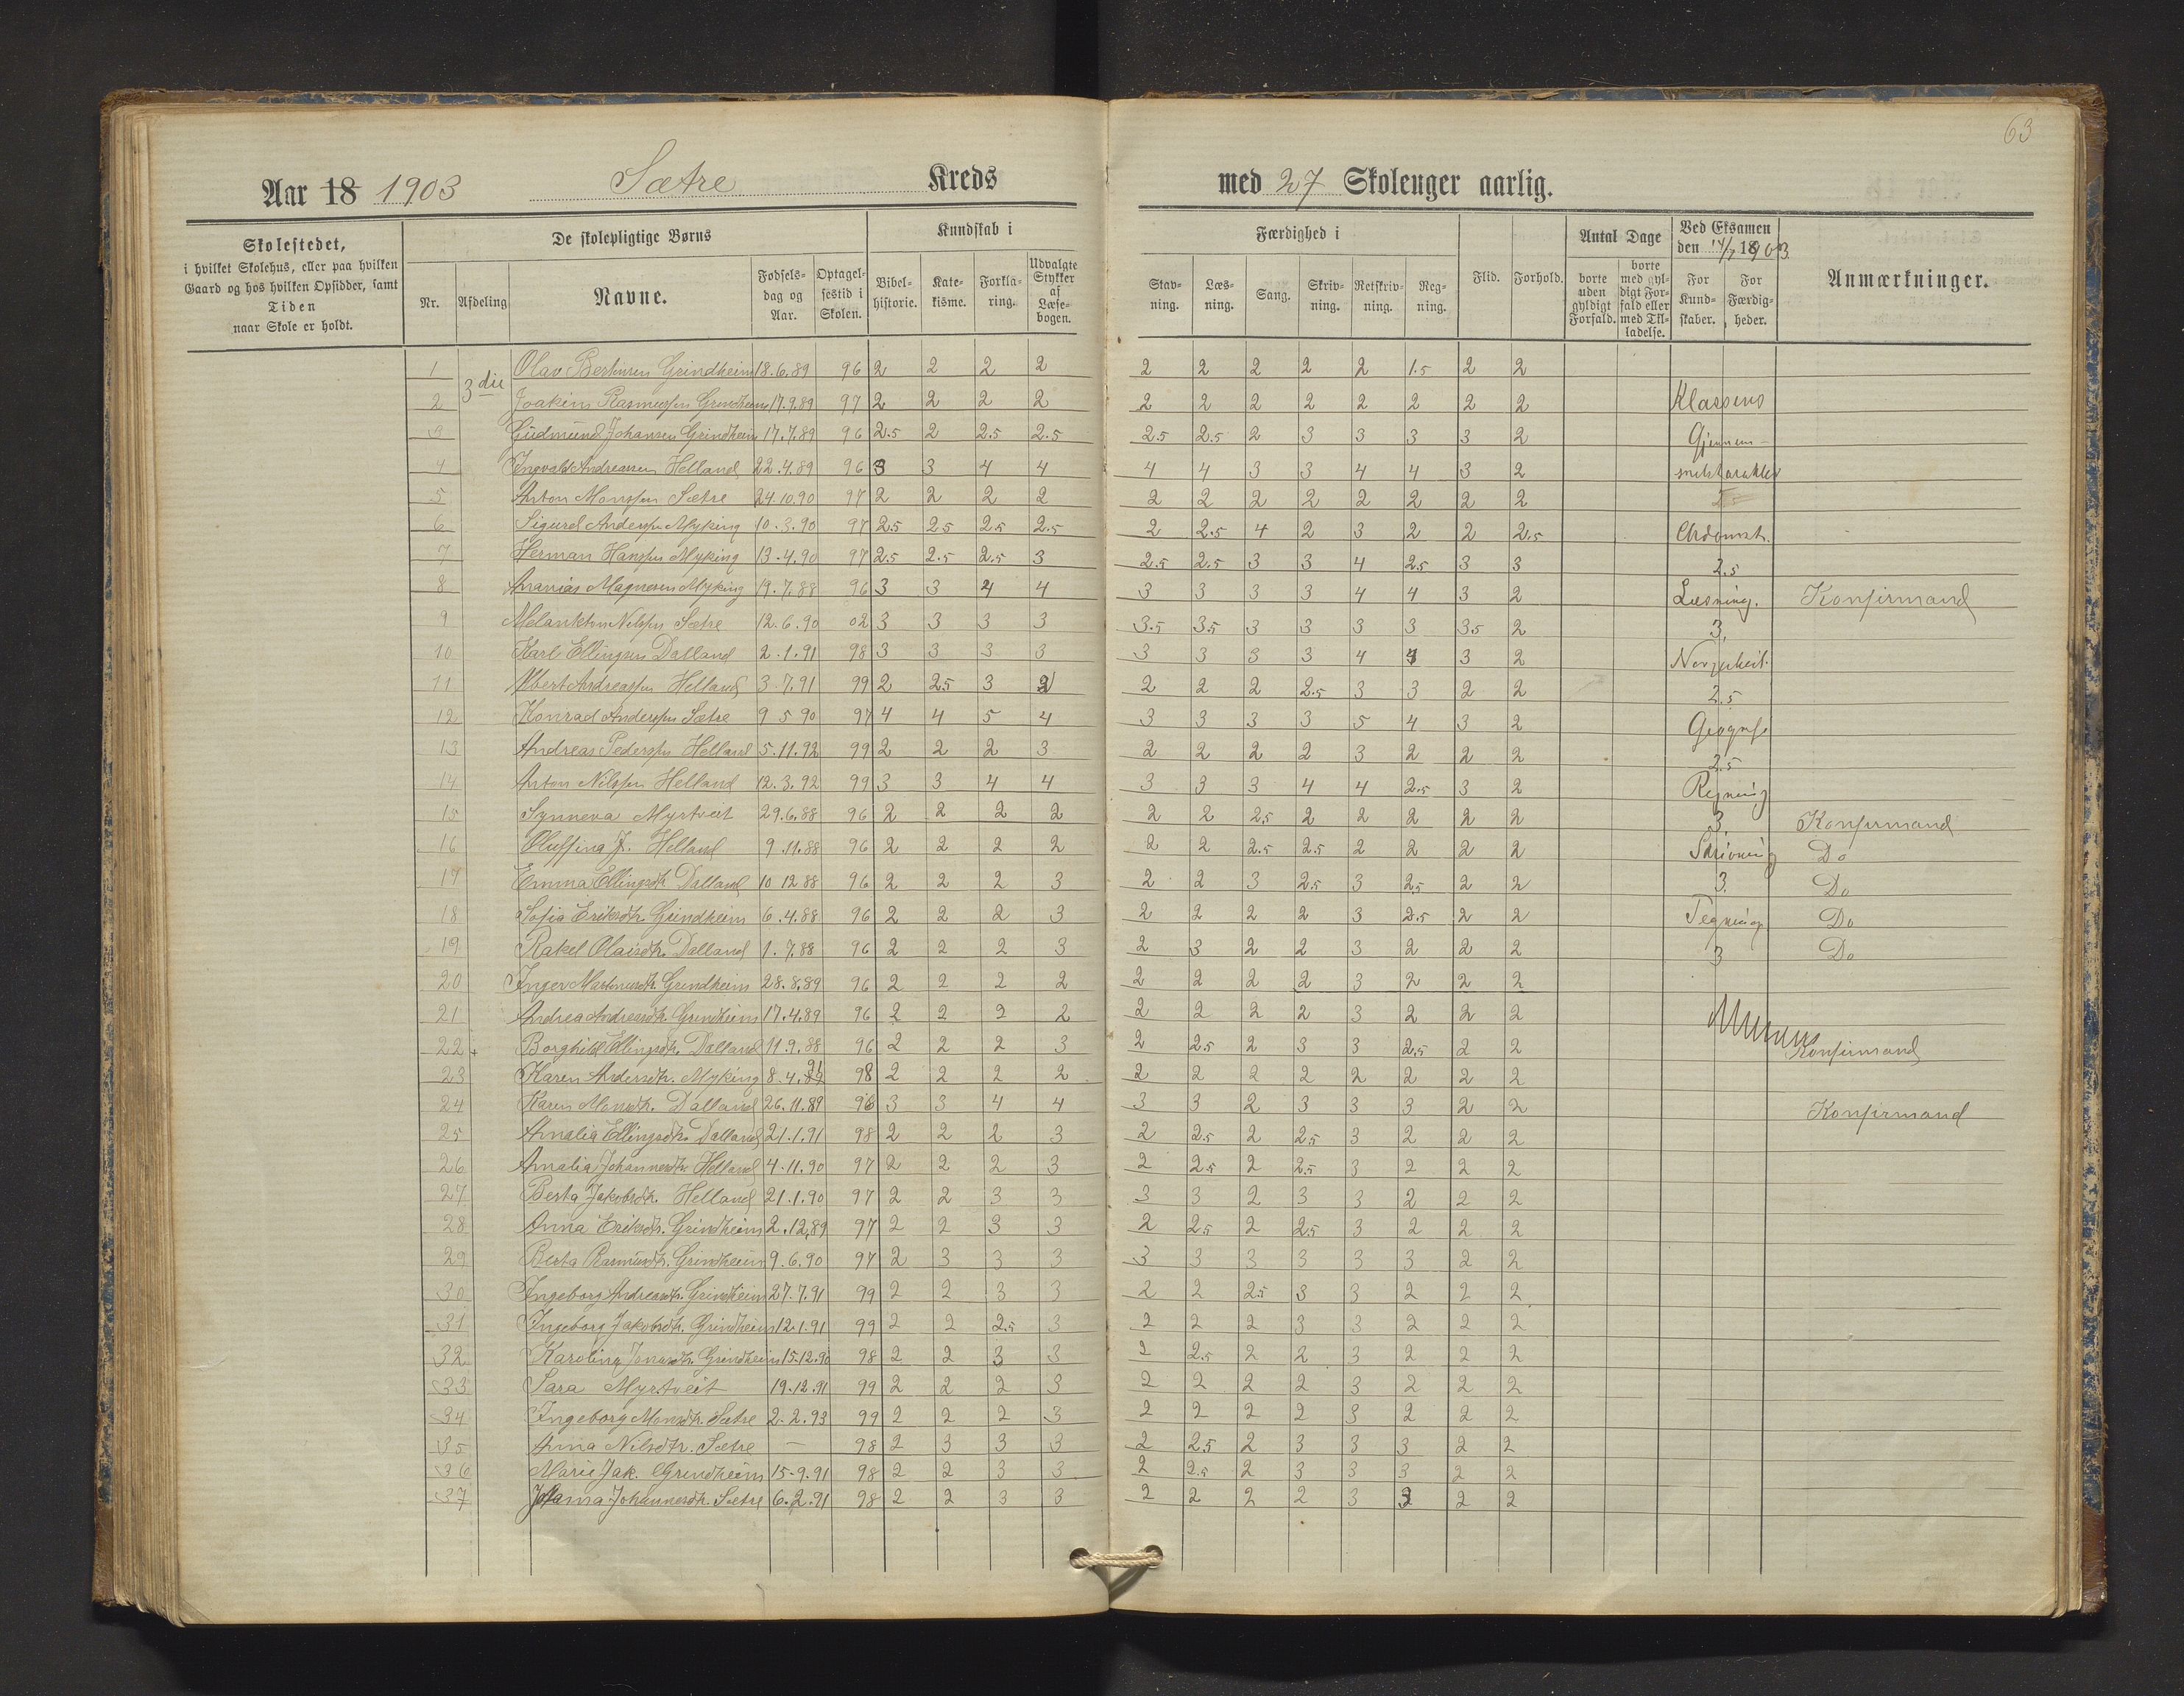 63
Aar 18 1903 Sætre Kreds med 27 Skoleuger aarlig.
Skolestedet, i hvilket Skolehus, eller paa hvilken Gaard og hos hvilken Opsidder, samt Tiden naar Skole er holdt.
De skolepligtige Børns
Kundskab i
Færdighed i
Antal Dage
Ved Eksamen den 14/7 1903
Nr. Afdeling Navne. Fødselsdag og Aar. Optagelsestid i Skolen. Bibelhistorie. Katekisme. Forklaring. Udvalgte Stykker af Læsebogen. Stavning. Læsning. Sang. Skrivning. Retskrivning. Regning. Flid. Forhold. borte uden gyldigt Forfald. borte med gyldigt Forfald eller med Tilladelse. For Kundskaber. For Færdigheder. Anmærkninger.
1 3die Olav Bertinsen Grindheim 18.6.89 96 2 2 2 2 2 2 2 2 2 1.5 2 2
2 Joakim Rasmussen Grindheim 17.9.89 97 2 2 2 2 2 2 2 2 2 2 2 2 Klassens
3 Gudmund Johansen Grindheim 17.7.89 96 2.5 2 2.5 2.5 2.5 2.5 2 3 3 3 3 2 Gjennem-
4 Ingvald Andreassen Helland 22.4.89 96 3 3 4 4 4 4 3 3 4 4 3 2 snitskarakter
5 Anton Monssen Sætre 24.10.90 97 2 2 2 2 2 2 2 2 2 2 2 2
6 Sigurd Anderssen Myking 10.3.90 97 2.5 2.5 2.5 2.5 2 2.5 4 2 3 2 2 2.5
7 Herman Hanssen Myking 13.4.90 97 2.5 2.5 2.5 3 2.5 2.5 3 3 4 2.5 3 3 2.5
8 Ananias Magnesen Myking 19.7.88 96 3 3 4 4 3 3 3 3 4 4 3 2 Læsning. Konfirmand
9 Melankton Nilssen Sætre 12.6.90 02 3 3 3 3 3.5 3.5 3 3 3 3 3.5 2 3.
10 Karl Ellingsen Dalland 2.1.91 98 3 3 3 3 3 3 3 3 4 4 3 2
11 Albert Andreassen Helland 3.7.91 99 2 2.5 3 2 2 2 2 2.5 3 3 2 2 2.5
12 Konrad Anderssen Sætre 9 5 90 97 4 4 5 4 3 3 3 3 5 4 3 2 Geografi
13 Andreas Pederssen Helland 5.11.92 99 2 2 2 3 2 2 2 2 3 2 2 2 2.5
14 Anton Nilssen Helland 12.3.92 99 3 3 4 4 3 3 3 4 4 2.5 3 2 Regning
15 Synneva Myrtveit 29.6.88 96 2 2 2 2 2 2 2.5 2 2 2 2 2 3. Konfirmand
16 Oluffina J. Helland 9.11.88 96 2 2 2 2 2 2 2.5 2.5 2 2 2 2 Skrivning Do
17 Emma Ellingsdtr. Dalland 10 12 88 96 2 2 2 3 2 2 3 2.5 3 2.5 2 2 3. Do
18 Sofia Eriksdtr. Grindheim 6.4.88 96 2 2 2 3 2 2 2 2 3 2.5 2 2 Tegning Do
19 Rakel Olaisdtr. Dalland 1.7.88 96 2 2 2 3 2 3 2 2 3 2 2 2 3 Do
20 Inger Martinusdtr. Grindheim 28.8.89 96 2 2 2 2 2 2 2 2 3 2 2 2
21 Andrea Andreasdtr. Grindheim 17.4.89 96 2 2 2 2 2 2 2 2 3 2 2 2
22 + Borghild Ellingsdtr. Dalland 11.9.88 96 2 2 2 3 2 2.5 2 3 3 2.5 2 2 Konfirmand
23 Karen Andersdtr. Myking 8.4.91 98 2 2 2 2 2 2 2 2 2 2 2 2
24 Karen Monsdtr. Dalland 26.11.89 96 3 3 4 4 3 3 2 3 3 3 2 2 Konfirmand
25 Amalia Ellingsdtr. Dalland 21.1.91 98 2 2 2 3 2 2.5 2 2.5 3 2 2 2
26 Amalia Johannesdtr. Helland 4.11.90 97 2 2 2 3 2 2.5 2 2.5 3 2 2 2
27 Berta Jakobsdtr. Helland 21.1.90 97 2 2 3 3 3 3 2 3 3 2 2 2
28 Anna Eriksdtr. Grindheim 2.12.89 97 2 2 3 3 2 2.5 2 2.5 3 2 2 2
29 Berta Rasmusdtr. Grindheim 9.6.90 97 2 3 3 3 3 3 3 3 3 3 2 2
30 Ingeborg Andreasdtr. Grindheim 27.7.91 99 2 2 3 3 2 2 2.5 3 3 2 2 2
31 Ingeborg Jakobsdtr. Grindheim 12.1.91 99 2 2 2.5 3 2 2 2 3 3 2 2 2
32 Karolina Jonasdtr. Grindheim 15.12.90 98 2 2 3 3 2 2.5 2 2 3 2 2 2
33 Sara Myrtveit 19.12.91 99 2 2 2 3 2 2 2 2 3 2 2 2
34 Ingeborg Monsdtr. Sætre 2.2.93 99 2 2 2 3 2 2 2 2 3 2 2 2
35 Anna Nilsdtr. Sætre — 98 2 3 3 3 2 2.5 2 3 3 3 2 2
36 Marie Jak. Grindheim 15.9.91 98 2 2 3 3 2 2.5 2 3 3 3 2 2
37 Johannesdtr. Sætre 6.2.91 98 2 2 3 3 2 2 2 2 3 3 2 2